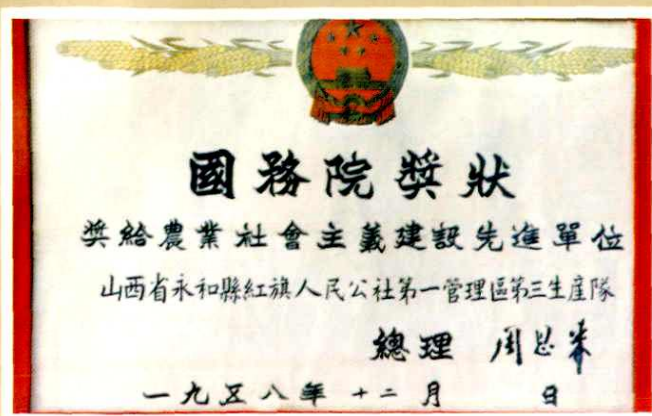 國務院獎狀
奖給農業社會主義建設先進單位
山西省永和縣紅旗人民公社第一管理區第三生產隊
總理 周恩来
一九五八年十二月 日